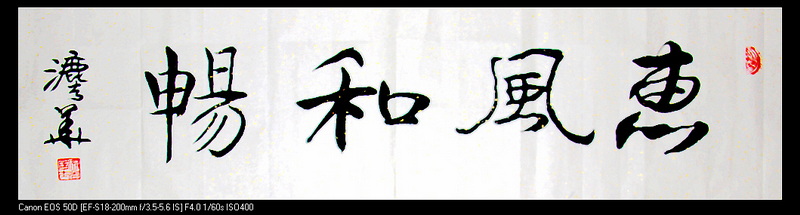 惠風和暢
Canon EOS 50D [EF-S18-200mm f/3.5-5.6 IS] F4.0 1/60s ISO400